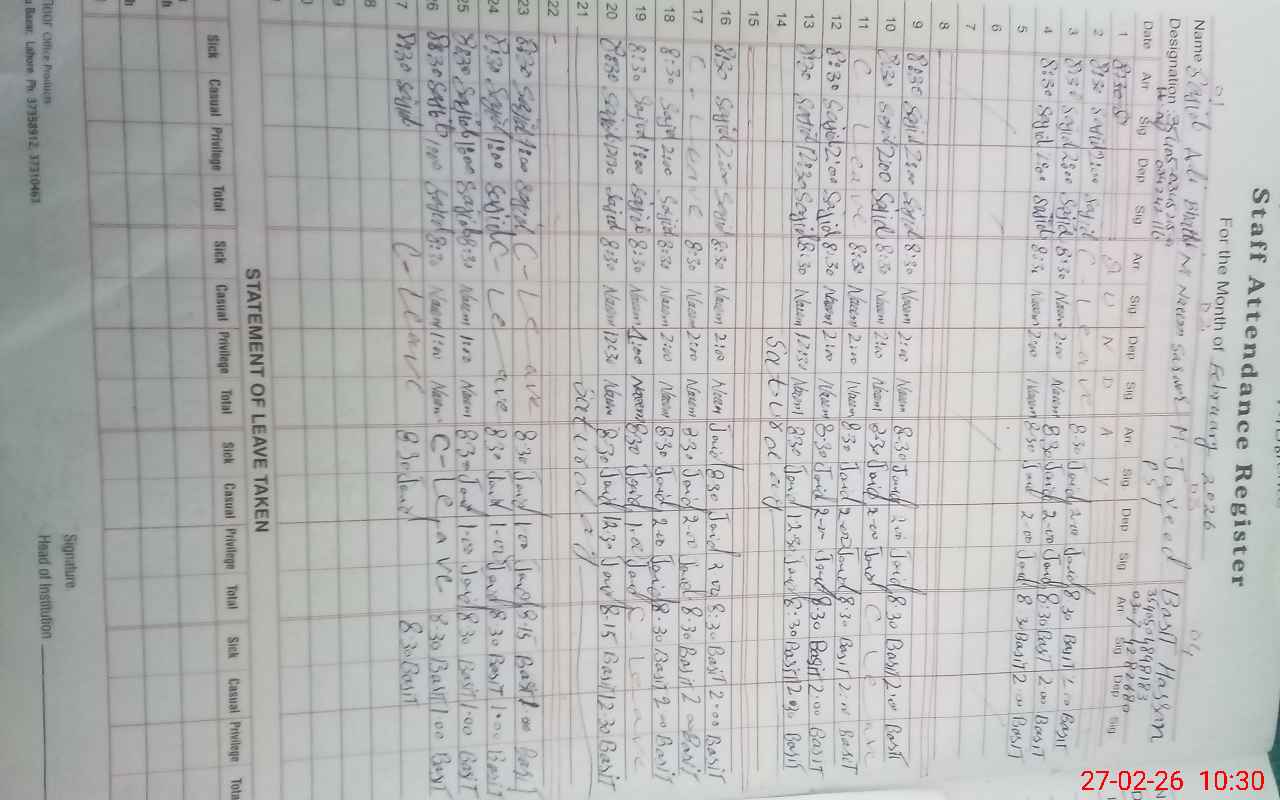 Staff Attendance Register
For the Month of February 2026
Name Sajid Ali Bhatti M Naeem Sarwar M. Javeed Basit Hassan
Designation PST
Date Arr Sig Dep Sig Arr Sig Dep Sig Arr Sig Dep Sig Arr Sig Dep Sig
1 S U N D A Y
2 8:30 Sajid 2:00 Sajid C - Leave 8:30 Javid 2:00 Javid 8:30 Basit 2:00 Basit
3 8:30 Sajid 2:00 Sajid 8:30 Naeem 2:00 Naeem 8:30 Javid 2-00 Javid 8:30 Basit 2:00 Basit
4 8:30 Sajid 2:00 Sajid 8:30 Naeem 2:00 Naeem 8:30 Javid 2-00 Javid 8:30 Basit 2:00 Basit
5
6
7
8
9 8:30 Sajid 2:00 Sajid 8:30 Naeem 2:00 Naeem 8:30 Javid 2:00 Javid 8:30 Basit 2:00 Basit
10 8:30 Sajid 2:00 Sajid 8:30 Naeem 2:00 Naeem 8:30 Javid 2-00 Javid C Leave
11 C Leave 8:30 Naeem 2:00 Naeem 8:30 Javid 2-00 Javid 8:30 Basit 2:00 Basit
12 8:30 Sajid 2:00 Sajid 8:30 Naeem 2:00 Naeem 8:30 Javid 2-00 Javid 8:30 Basit 2:00 Basit
13 8:30 Sajid 12:30 Sajid 8:30 Naeem 12:30 Naeem 8:30 Javid 12:30 Javid 8:30 Basit 12:30 Basit
14 Saturday
15
16 8:30 Sajid 2:00 Sajid 8:30 Naeem 2:00 Naeem Javid 8:30 Javid 2:00 8:30 Basit 2:00 Basit
17 C - Leave 8:30 Naeem 2:00 Naeem 8:30 Javid 2-00 Javid 8:30 Basit 2:00 Basit
18 8:30 Sajid 2:00 Sajid 8:30 Naeem 2:00 Naeem 8:30 Javid 2:00 Javid 8:30 Basit 2:00 Basit
19 8:30 Sajid 1:00 Sajid 8:30 Naeem 1:00 Naeem 8:30 Javid 1:00 Javid C Leave
20 8:30 Sajid 12:30 Sajid 8:30 Naeem 12:30 Naeem 8:30 Javid 12:30 Javid 8:15 Basit 12:30 Basit
21 Saturday
22
23 8:30 Sajid 1:00 Sajid C - Leave 8:30 Javid 1:00 Javid 8:15 Basit 1:00 Basit
24 8:30 Sajid 1:00 Sajid C - Leave 8:30 Javid 1-00 Javid 8:30 Basit 1:00 Basit
25 8:30 Sajid 1:00 Sajid 8:30 Naeem 1:00 Naeem 8:30 Javid 1-00 Javid 8:30 Basit 1:00 Basit
26 8:30 Sajid 1:00 Sajid 8:30 Naeem 1:00 Naeem C - Leave 8:30 Basit 1:00 Basit
7 8:30 Sajid C - Leave 8:30 Javid 8:30 Basit
8
9
STATEMENT OF LEAVE TAKEN
Sick Casual Privilege Total Sick Casual Privilege Total Sick Casual Privilege Total Sick Casual Privilege Total
Signature
Head of Institution
Office Products
Bazar, Lahore. Ph: 37358912, 37310463
27-02-26 10:30